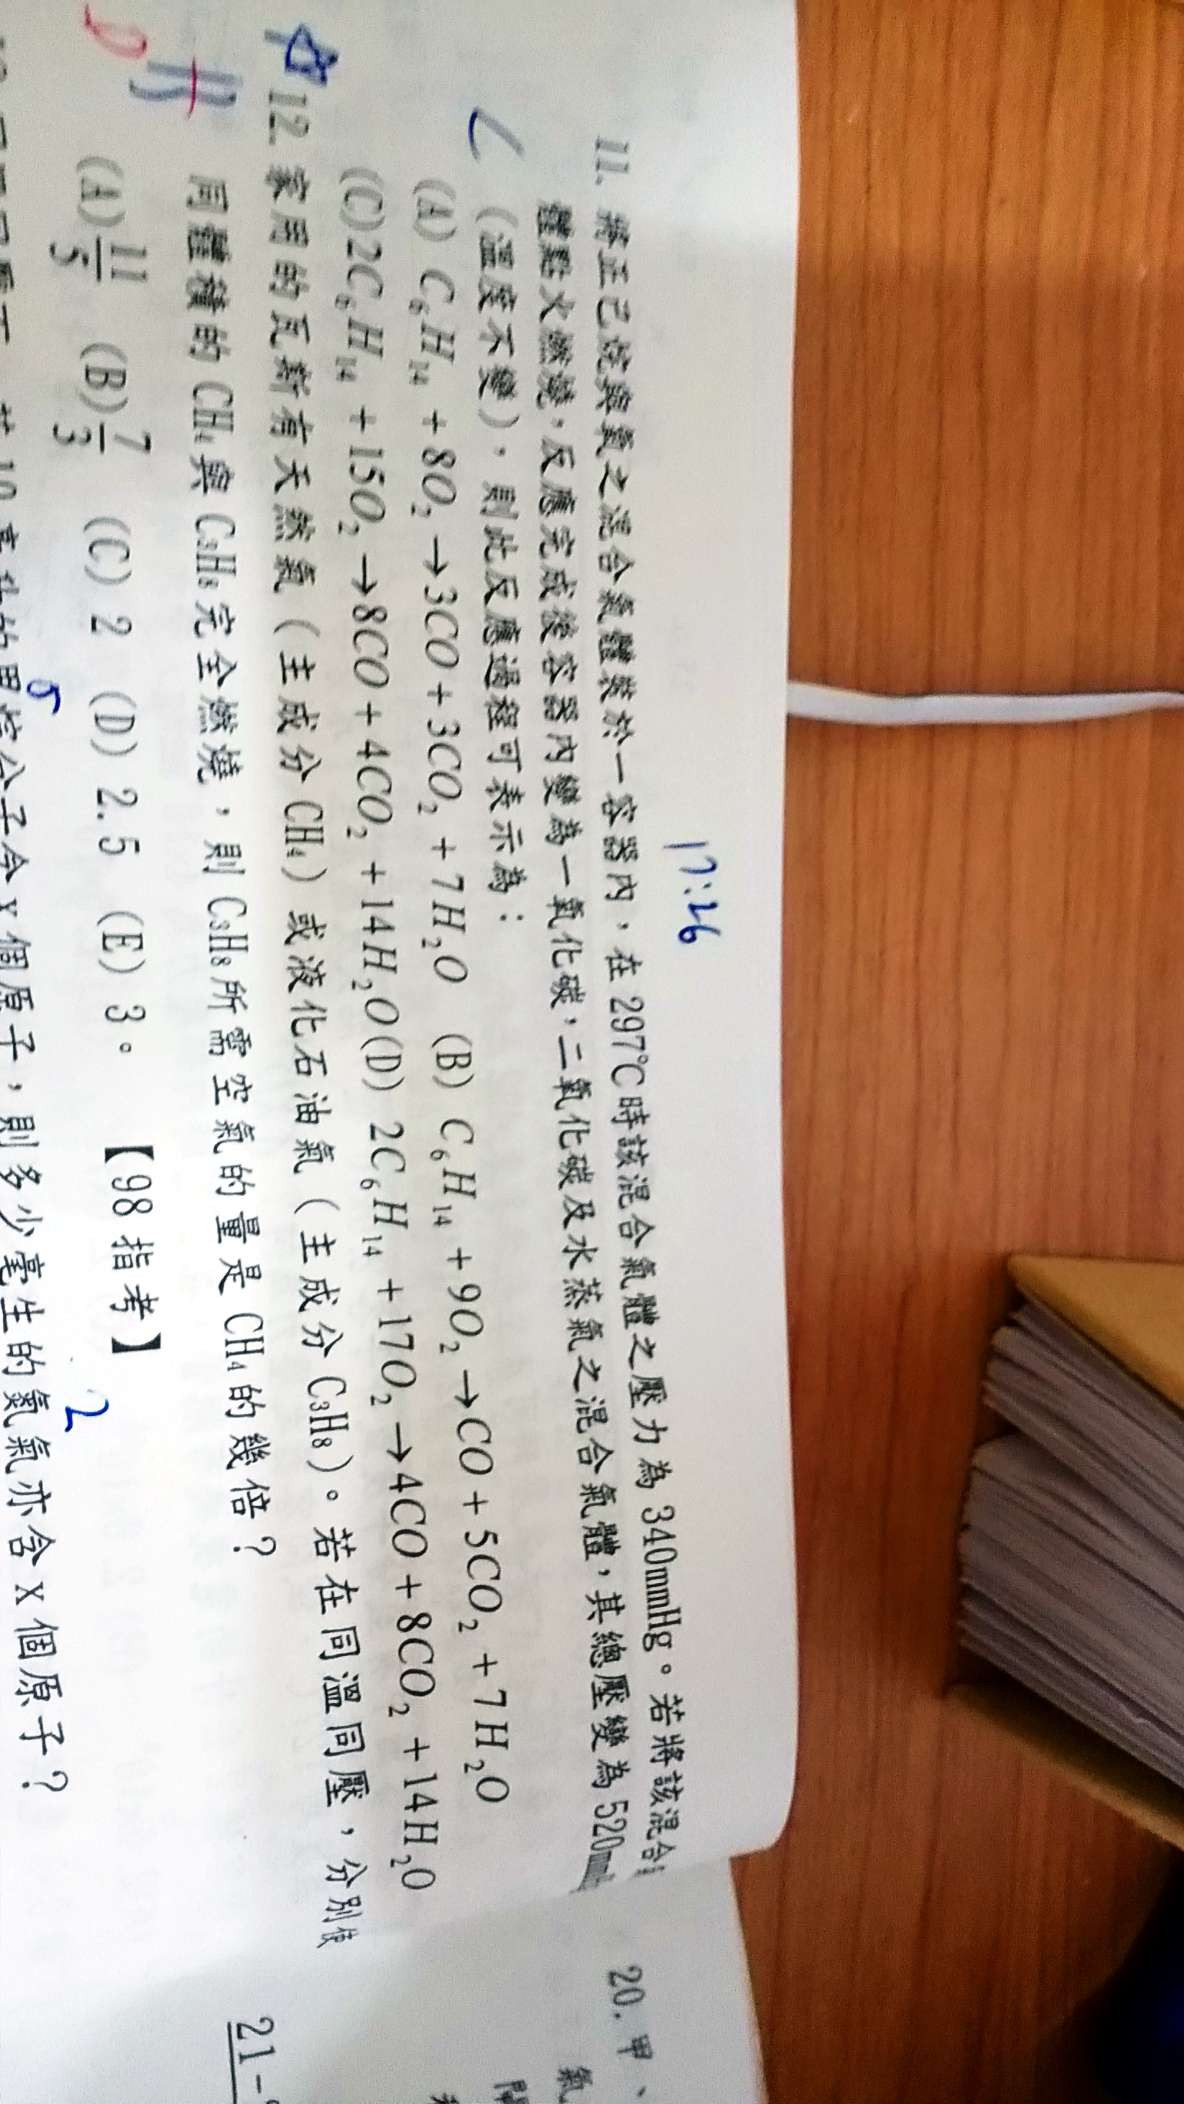 17:26
11. 將正己烷與氧之混合氣體裝於一容器內，在 297℃時該混合氣體之壓力為 340mmHg。若將該混合
體點火燃燒，反應完成後容器內變為一氧化碳，二氧化碳及水蒸氣之混合氣體，其總壓變為 520mm
（溫度不變），則此反應過程可表示為：
(A) C₆H₁₄ + 8O₂ → 3CO + 3CO₂ + 7H₂O (B) C₆H₁₄ + 9O₂ → CO + 5CO₂ + 7H₂O
(C) 2C₆H₁₄ + 15O₂ → 8CO + 4CO₂ + 14H₂O (D) 2C₆H₁₄ + 17O₂ → 4CO + 8CO₂ + 14H₂O
12. 家用的瓦斯有天然氣（主成分 CH₄）或液化石油氣（主成分 C₃H₈）。若在同溫同壓，分別使
同體積的 CH₄ 與 C₃H₈ 完全燃燒，則 C₃H₈ 所需空氣的量是 CH₄ 的幾倍？
D
(A) 11/5 (B) 7/3 (C) 2 (D) 2.5 (E) 3。 【98 指考】
5
2
個原子，則多少毫生的氦氣亦含 X 個原子？
20. 甲、
氣
21-